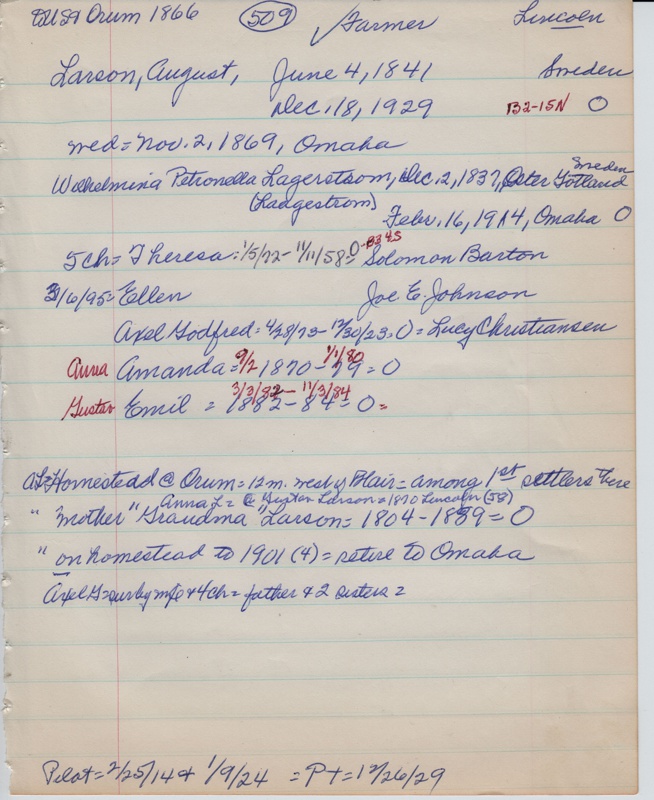 Orum 1866 509 ✓Farmer Lincoln
Larson, August, June 4, 1841 Sweden
Dec. 18, 1929 B2-15N O
med = Nov. 2, 1869, Omaha
Wilhelmina Petronella Lagerstrom, Dec. 2, 1837, Oster Gotland Sweden
(Langestrom)
Febr. 16, 1914, Omaha O
5 ch = Theresa: 1/5/72 - 11/11/58 = O - B34S Solomon Barton
3/6/95 = Ellen Joe E. Johnson
Axel Godfred = 4/28/73 - 12/30/23 = O = Lucy Christiansen
Anna Amanda = 9/2 1870 - 1/1/80 79 = O
Gustav Emil = 3/3/82 - 11/3/84 1882 - 84 = O =
Homestead @ Orum = 12 m. west of Blair = among 1st settlers there
Anna L = @ Gustav Larson = 1870 Lincoln (58)
" mother "Grandma" Larson = 1804 - 1889 = O
" on homestead to 1901 (4) = retire to Omaha
Axel G = sur by & 4 ch = father & 2 sisters =
Pilot = 2/25/14 & 1/9/24 = P+ = 12/26/29